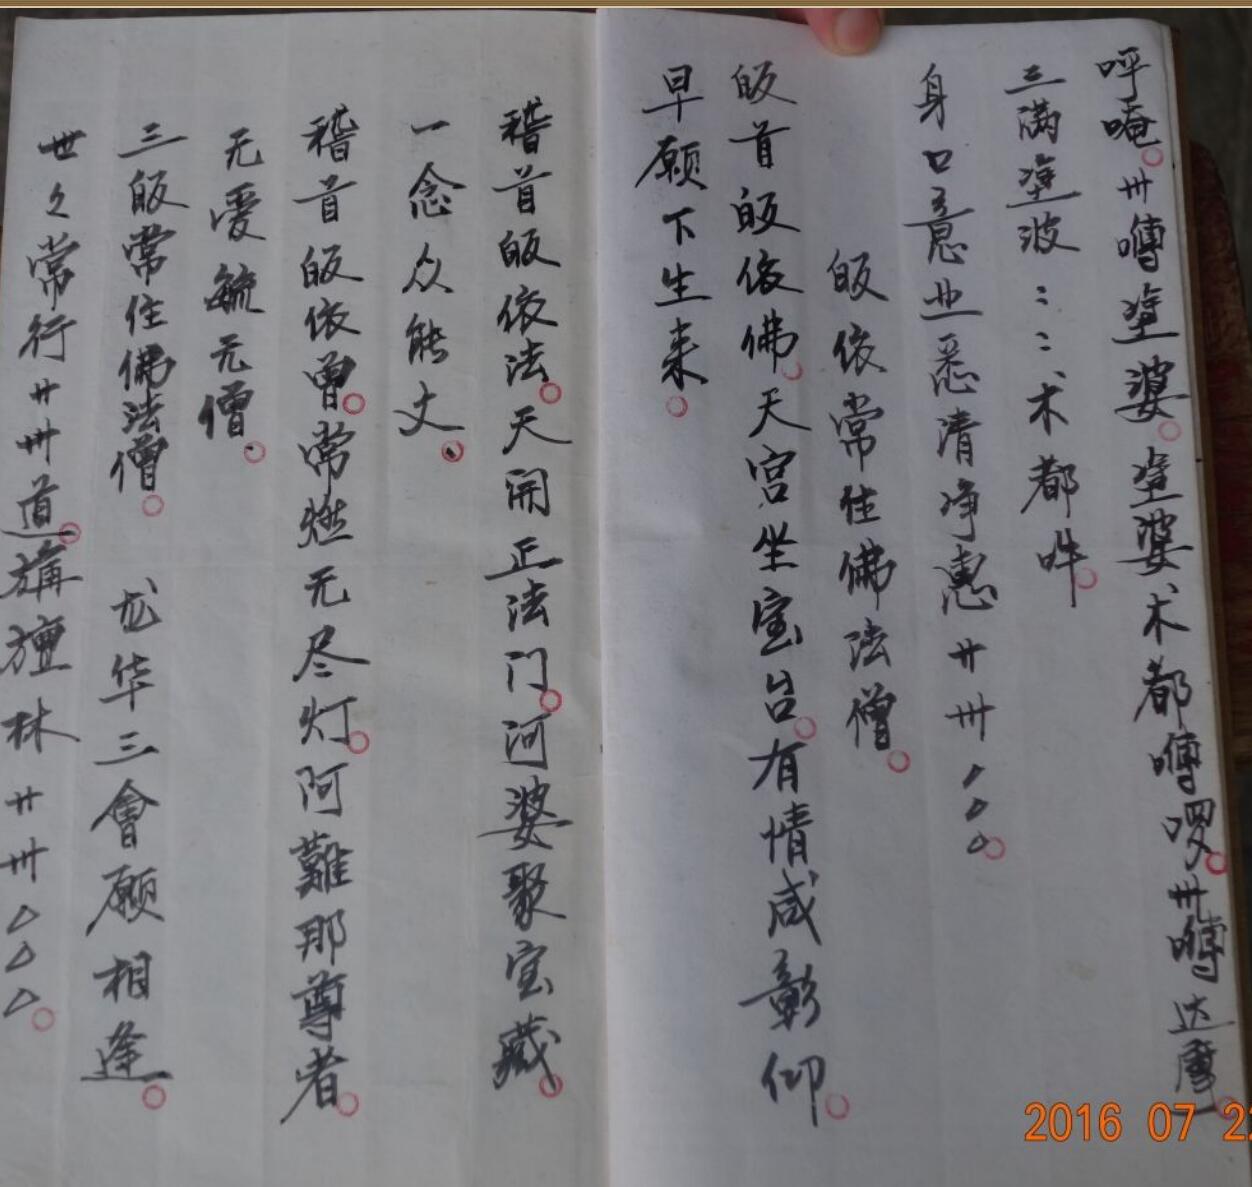 呼唵卅嚩塗婆塗婆术都嚩啰卅嚩达摩
三满塗波术都吽
身口意业悉清净惠廿卅
皈依常住佛法僧
皈首皈依佛天宫坐宝台有情咸彰仰
早愿下生来
稽首皈依法天開正法门河婆聚宝藏
一念众能丈
稽首皈依曾常燃无尽灯阿難那尊者
无爱毓元僧
三皈常住佛法僧 龙华三會愿相逢
世々常行廿卅道旃檀林廿卅
2016 07 22